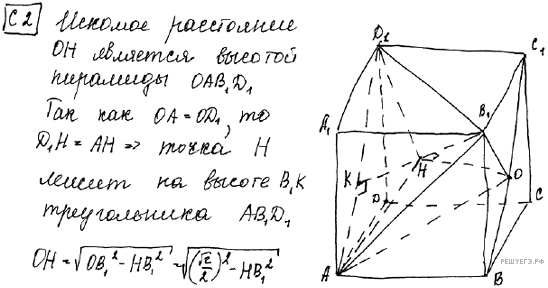 C2 Искомое расстояние
OH является высотой
пирамиды OAB₁D₁
Так как OA = OD₁, то
D₁H = AH => точка H
лежит на высоте B₁K
треугольника AB₁D₁
OH = √(OB₁² - HB₁²) = √((√2/2)² - HB₁²)
D₁
C₁
A₁
B₁
H
K
O
D
C
A
B
РЕШУЕГЭ.РФ